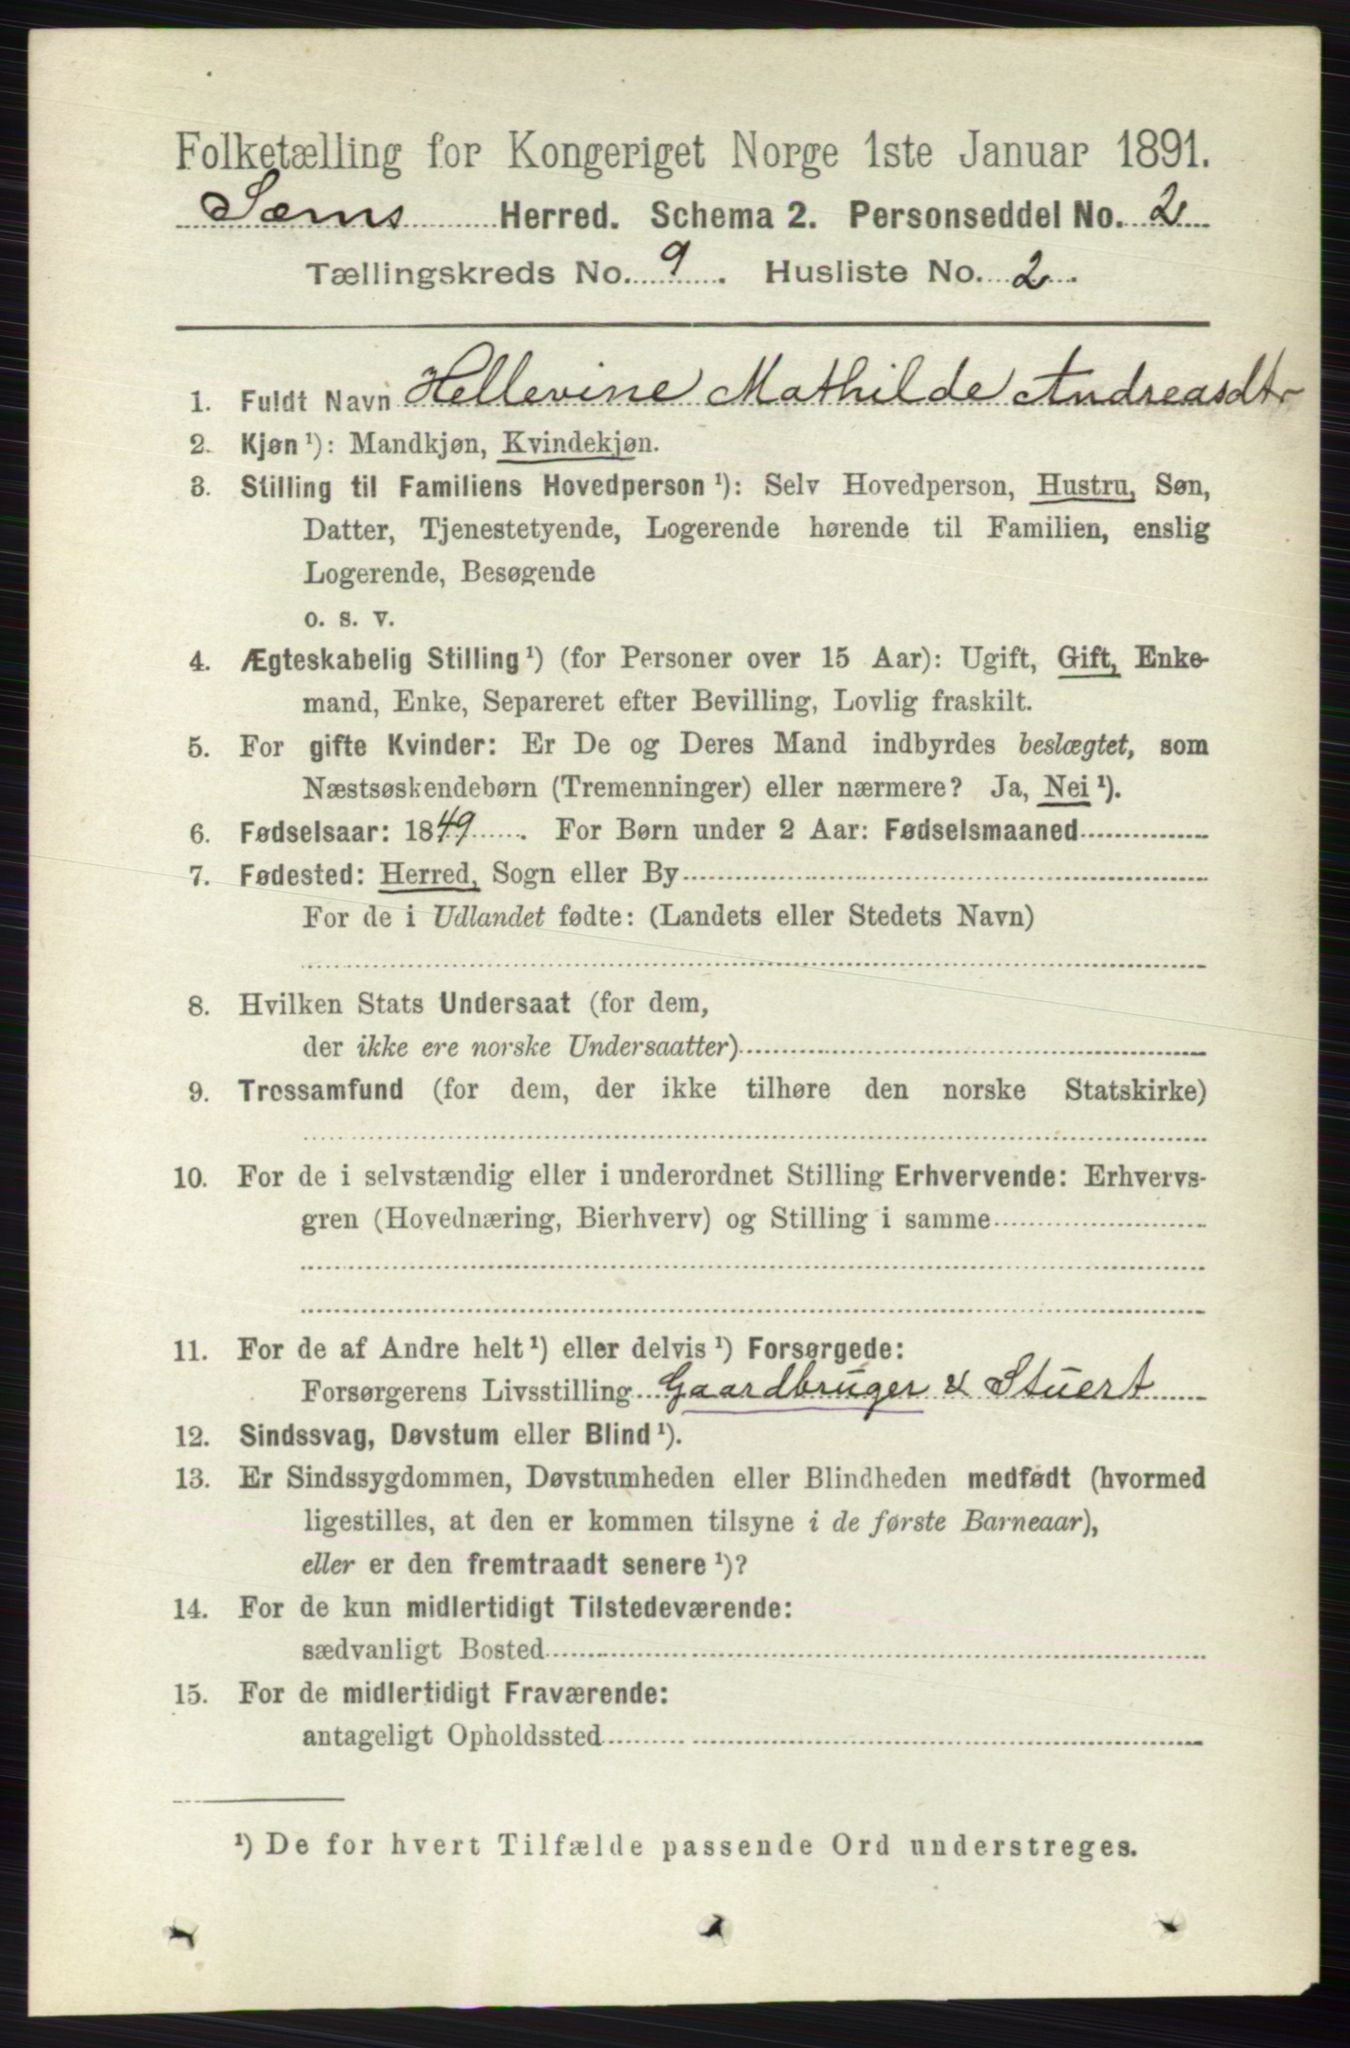 Folketælling for Kongeriget Norge 1ste Januar 1891.
Sæms Herred. Schema 2. Personseddel No. 2
Tællingskreds No. 9. Husliste No. 2.
1. Fuldt Navn Hellevine Mathilde Andreasdtr
2. Kjøn ¹): Mandkjøn, Kvindekjøn.
3. Stilling til Familiens Hovedperson ¹): Selv Hovedperson, Hustru, Søn,
Datter, Tjenestetyende, Logerende hørende til Familien, enslig
Logerende, Besøgende
o. s. v.
4. Ægteskabelig Stilling ¹) (for Personer over 15 Aar): Ugift, Gift, Enke-
mand, Enke, Separeret efter Bevilling, Lovlig fraskilt.
5. For gifte Kvinder: Er De og Deres Mand indbyrdes beslægtet, som
Næstsøskendebørn (Tremenninger) eller nærmere? Ja, Nei ¹).
6. Fødselsaar: 1849. For Børn under 2 Aar: Fødselsmaaned
7. Fødested: Herred, Sogn eller By
For de i Udlandet fødte: (Landets eller Stedets Navn)
8. Hvilken Stats Undersaat (for dem,
der ikke ere norske Undersaatter)
9. Trossamfund (for dem, der ikke tilhøre den norske Statskirke)
10. For de i selvstændig eller i underordnet Stilling Erhvervende: Erhvervs-
gren (Hovednæring, Bierhverv) og Stilling i samme
11. For de af Andre helt ¹) eller delvis ¹) Forsørgede:
Forsørgerens Livsstilling Gaardbruger & Stuert
12. Sindssvag, Døvstum eller Blind ¹).
13. Er Sindssygdommen, Døvstumheden eller Blindheden medfødt (hvormed
ligestilles, at den er kommen tilsyne i de første Barneaar),
eller er den fremtraadt senere ¹)?
14. For de kun midlertidigt Tilstedeværende:
sædvanligt Bosted
15. For de midlertidigt Fraværende:
antageligt Opholdssted
¹) De for hvert Tilfælde passende Ord understreges.